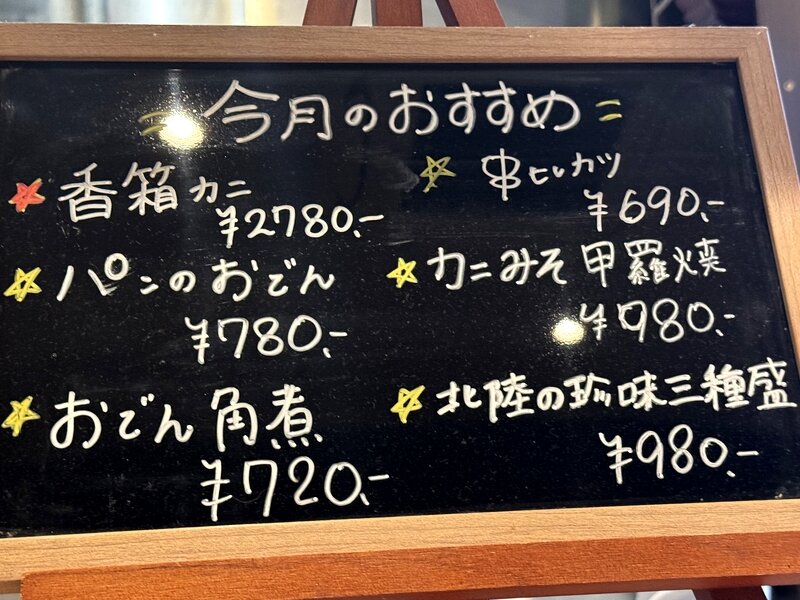 今月のおすすめ
香箱カニ
¥2780.-
パンのおでん
¥780.-
おでん角煮
¥720.-
串ヒレカツ
¥690.-
カニみそ甲羅焼
¥980.-
北陸の珍味三種盛
¥980.-